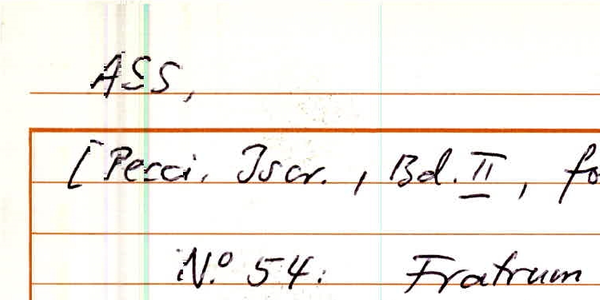 ASS,
[Pecci, Iscr., Bd. II, fo
N.º 54: Fratrum